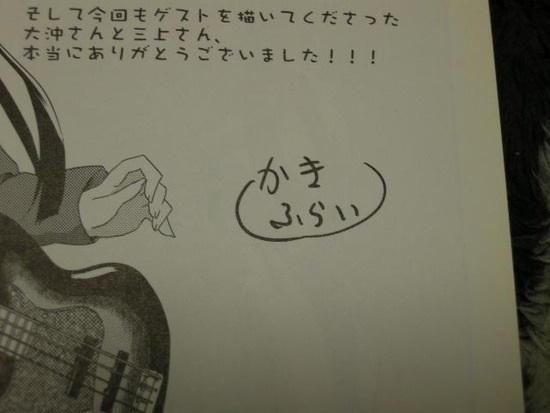 そして今回もゲストを描いてくださった
大沖さんと三上さん、
本当にありがとうございました！！！
かき
ふらい